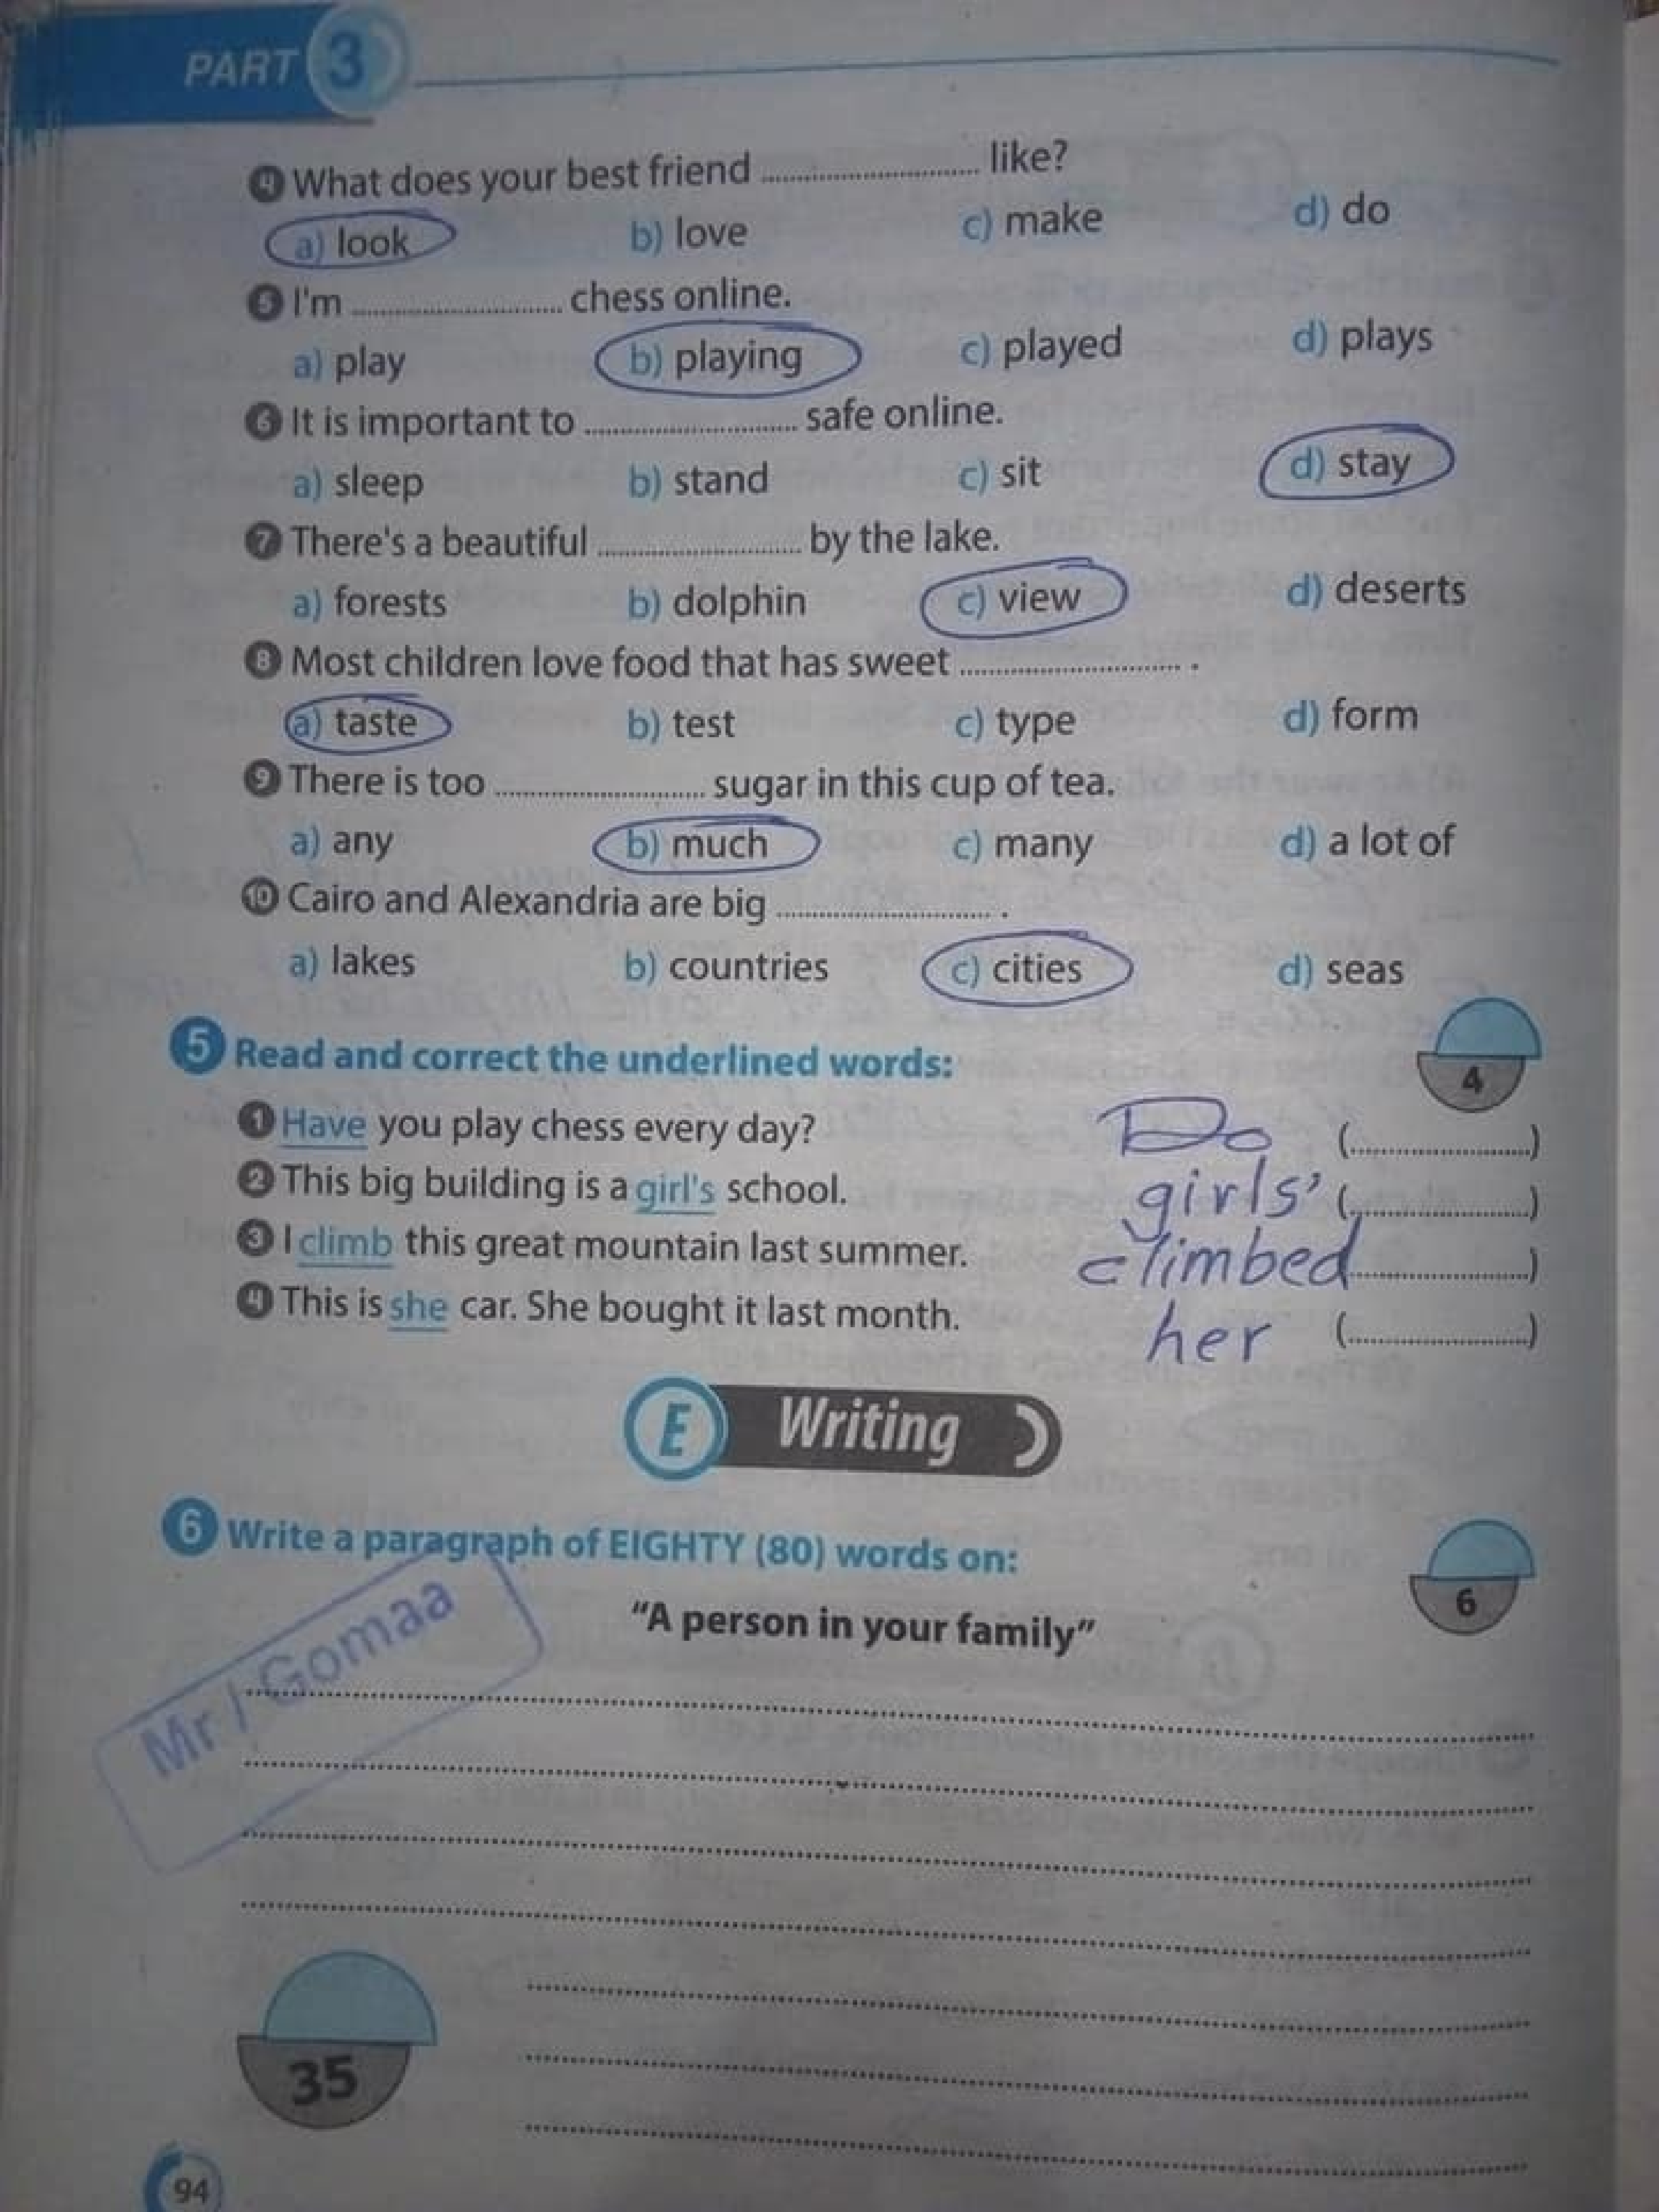 PART 3
4 What does your best friend .............................. like?
a) look b) love c) make d) do
5 I'm .............................. chess online.
a) play b) playing c) played d) plays
6 It is important to .............................. safe online.
a) sleep b) stand c) sit d) stay
7 There's a beautiful .............................. by the lake.
a) forests b) dolphin c) view d) deserts
8 Most children love food that has sweet .............................. .
a) taste b) test c) type d) form
9 There is too .............................. sugar in this cup of tea.
a) any b) much c) many d) a lot of
10 Cairo and Alexandria are big .............................. .
a) lakes b) countries c) cities d) seas
5 Read and correct the underlined words:
4
1 Have you play chess every day? Do (..............................)
2 This big building is a girl's school. girls' (..............................)
3 I climb this great mountain last summer. climbed ..............................)
4 This is she car. She bought it last month. her (..............................)
E Writing
6 Write a paragraph of EIGHTY (80) words on:
6
"A person in your family"
Mr / Gomaa
35
94